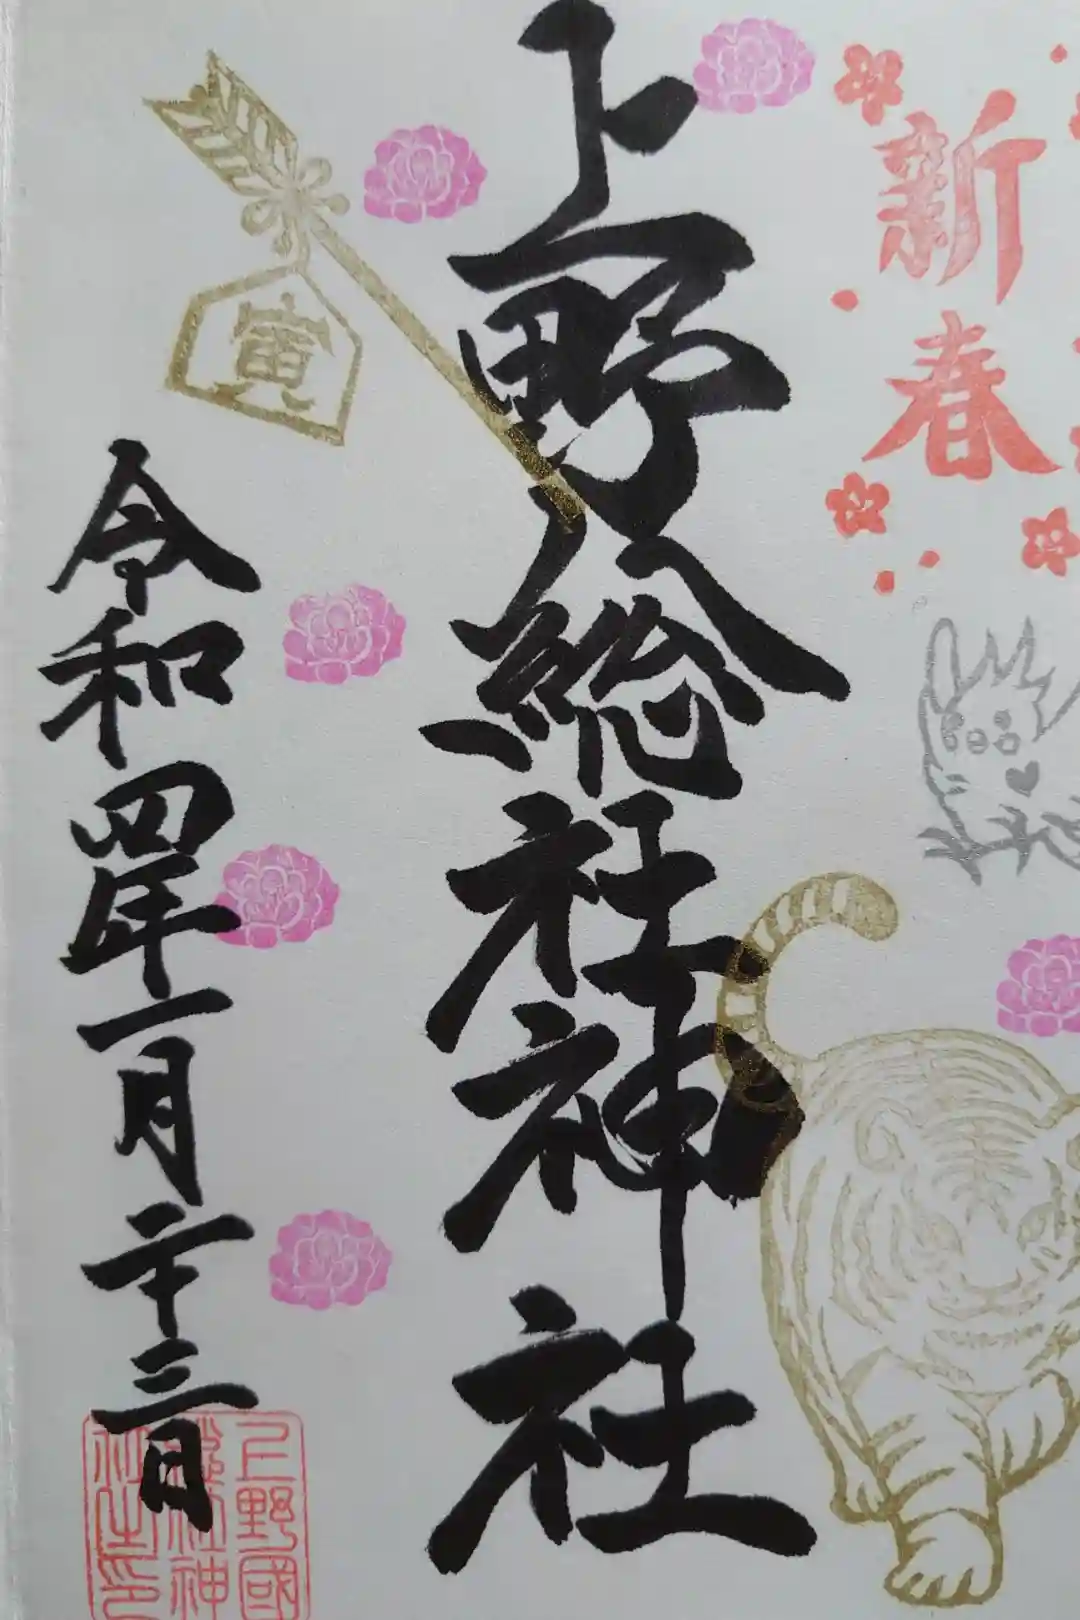 新春
上野総社神社
寅
令和四年一月二十三日
上野國
総社神
社之印